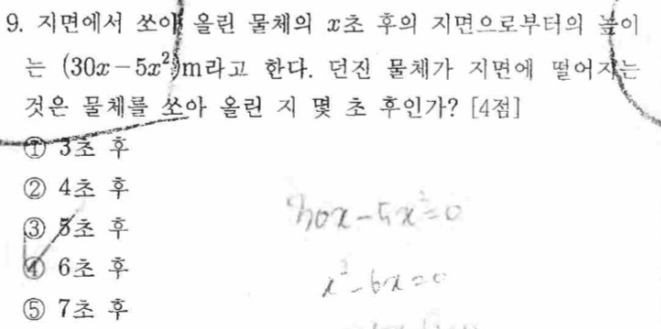 9. 지면에서 쏘아 올린 물체의 x초 후의 지면으로부터의 높이
는 (30x-5x²)m라고 한다. 던진 물체가 지면에 떨어지는
것은 물체를 쏘아 올린 지 몇 초 후인가? [4점]
① 3초 후
② 4초 후
③ 5초 후
④ 6초 후
⑤ 7초 후
30x-5x²=0
x²-6x=0